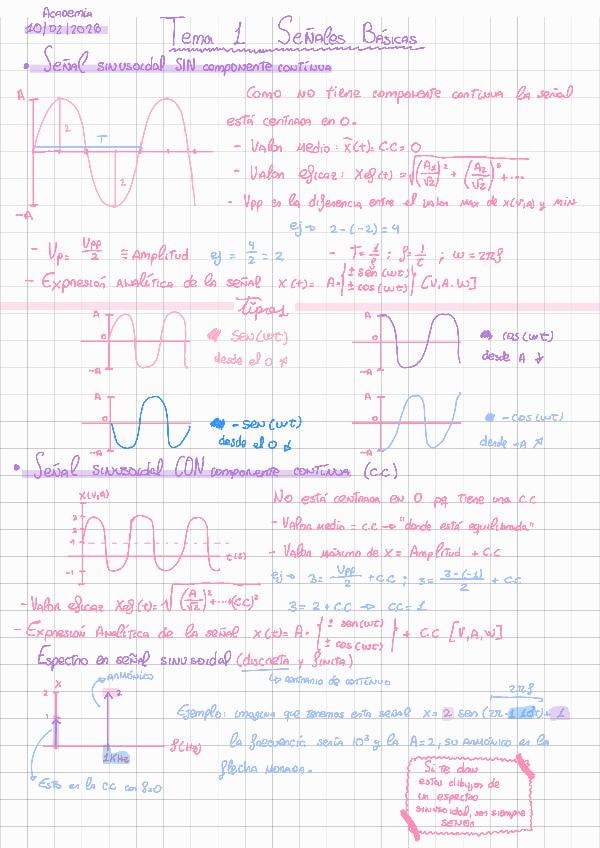 Academia
10/02/2026
Tema 1 Señales Básicas
• Señal sinusoidal SIN componente contínua
A
2
T
2
-A
Como no tiene componente contínua la señal
está centrada en 0.
- Valor medio: x̄(t) = C.C = 0
- Valor eficaz: Xef(t) = √((A₁/√2)² + (A₂/√2)² + ...
- Vpp es la diferencia entre el valor max de x(V,A) y min
ej → 2-(-2) = 4
- Vp = Vpp/2 ≅ Amplitud ej = 4/2 = 2
- T = 1/f ; f = 1/t ; w = 2πf
- Expresión analítica de la señal x(t) = A·{± sen(wt) ± cos(wt)} [V.A.W]
Tipos
A
0
-A
sen(wt)
desde el 0 ↗
A
0
-A
cos(wt)
desde A ↓
A
0
-A
- sen(wt)
desde el 0 ↓
A
0
-A
- cos(wt)
desde -A ↗
• Señal sinusoidal CON componente contínua (C.C)
x(V,A)
3
2
1
-1
t(s)
No está centrada en 0 pq tiene una C.C
- Valor medio = C.C → "donde está equilibrada"
- Valor máximo de x = Amplitud + C.C
ej → 3 = Vpp/2 + C.C ; 3 = 3-(-1)/2 + C.C
3 = 2 + C.C → CC = 1
- Valor eficaz Xef(t) = √((A/√2)² + ... (CC)²
- Expresión Analítica de la señal x(t) = A·{± sen(wt) ± cos(wt)} + C.C [V,A,W]
Espectro en señal sinusoidal (discreta y finita)
↳ contrario de contínuo
x
2
1
armónico
2
1KHz
f(Hz)
Esto es la CC con f=0
2πf
Ejemplo: imagina que tenemos esta señal x = 2 sen(2π·1·10³t) + 1
la frecuencia sería 10³ y la A=2, su armónico es la
flecha morada.
Si te dan
estos dibujos de
un espectro
sinusoidal, son siempre
SENOS